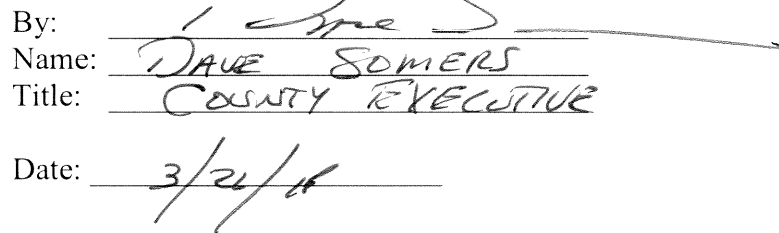 By:
Name: DAVE SOMERS
Title: COUNTY EXECUTIVE
Date: